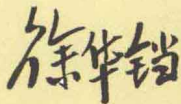 徐华铛